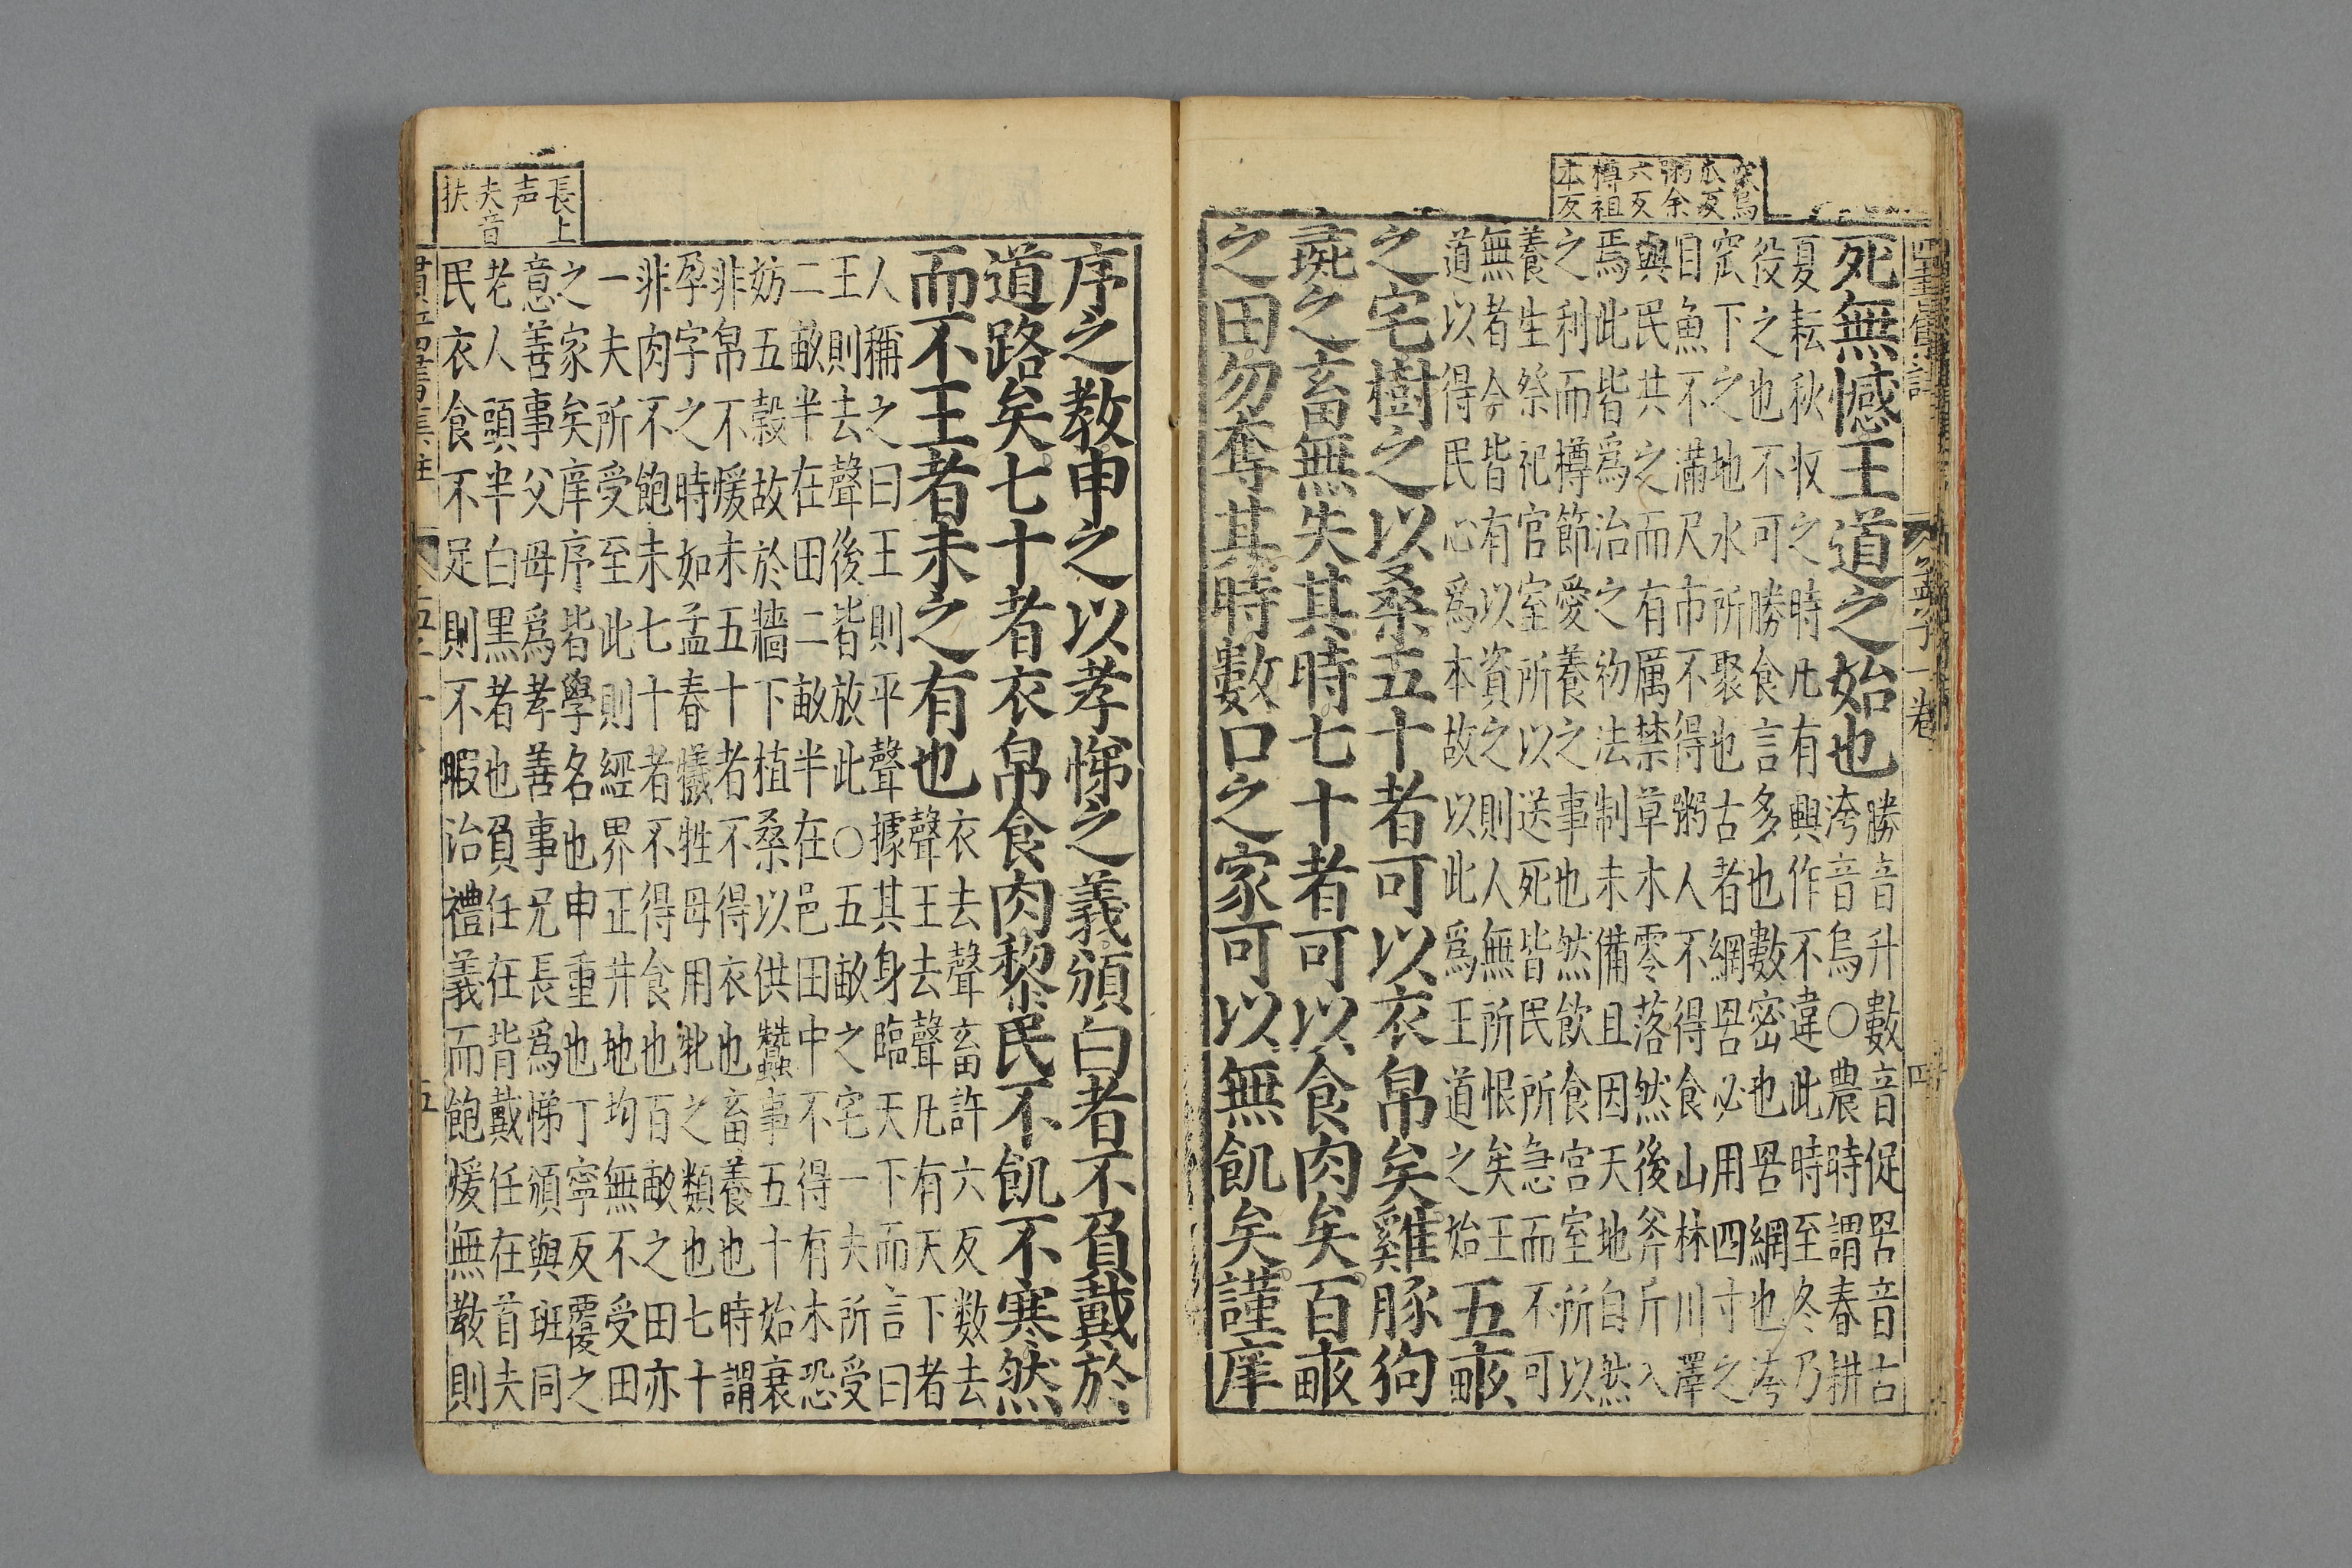 粥余
六反
樽祖
本反
孟子一卷 四
死無憾王道之始也
勝音升數音促罟音古
洿音烏○農時謂春耕
夏耘秋收之時凡有興作不違此時至冬乃
役之也不可勝食言多也數密也罟網也洿
窊下之地水所聚也古者網罟必用四寸之
目魚不滿尺市不得粥人不得食山林川澤
與民共之而有厲禁草木零落然後斧斤入
焉此皆爲治之初法制未備且因天地自然
之利而樽節愛養之事也然飲食宮室所以
養生祭祀官室所以送死皆民所急而不可
無者今皆有以資之則人無所恨矣王
道以得民心爲本故以此爲王道之始
五畝
之宅樹之以桑五十者可以衣帛矣雞豚狗
彘之畜無失其時七十者可以食肉矣百畝
之田勿奪其時數口之家可以無飢矣謹庠
長上
声
夫音
扶
序之教申之以孝悌之義頒白者不負戴於
道路矣七十者衣帛食肉黎民不飢不寒然
而不王者未之有也
衣去聲畜許六反数去
聲王去聲凡有天下者
人稱之曰王則平聲據其身臨天下而言曰
王則去聲後皆放此○五畝之宅一夫所受
二畝半在田二畝半在邑田中不得有木恐
妨五穀故於牆下植桑以供蠶事五十始衰
非帛不煖未五十者不得衣也畜養也時謂
孕字之時如孟春犧牲毋用牝之類也七十
非肉不飽未七十者不得食也百畝之田亦
一夫所受至此則經界正井地均無不受田
之家矣庠序皆學名也申重也丁寧反覆之
意善事父母爲孝善事兄長爲悌頒與班同
老人頭半白黑者也負任在背戴任在首夫
民衣食不足則不暇治禮義而飽煖無教則
五